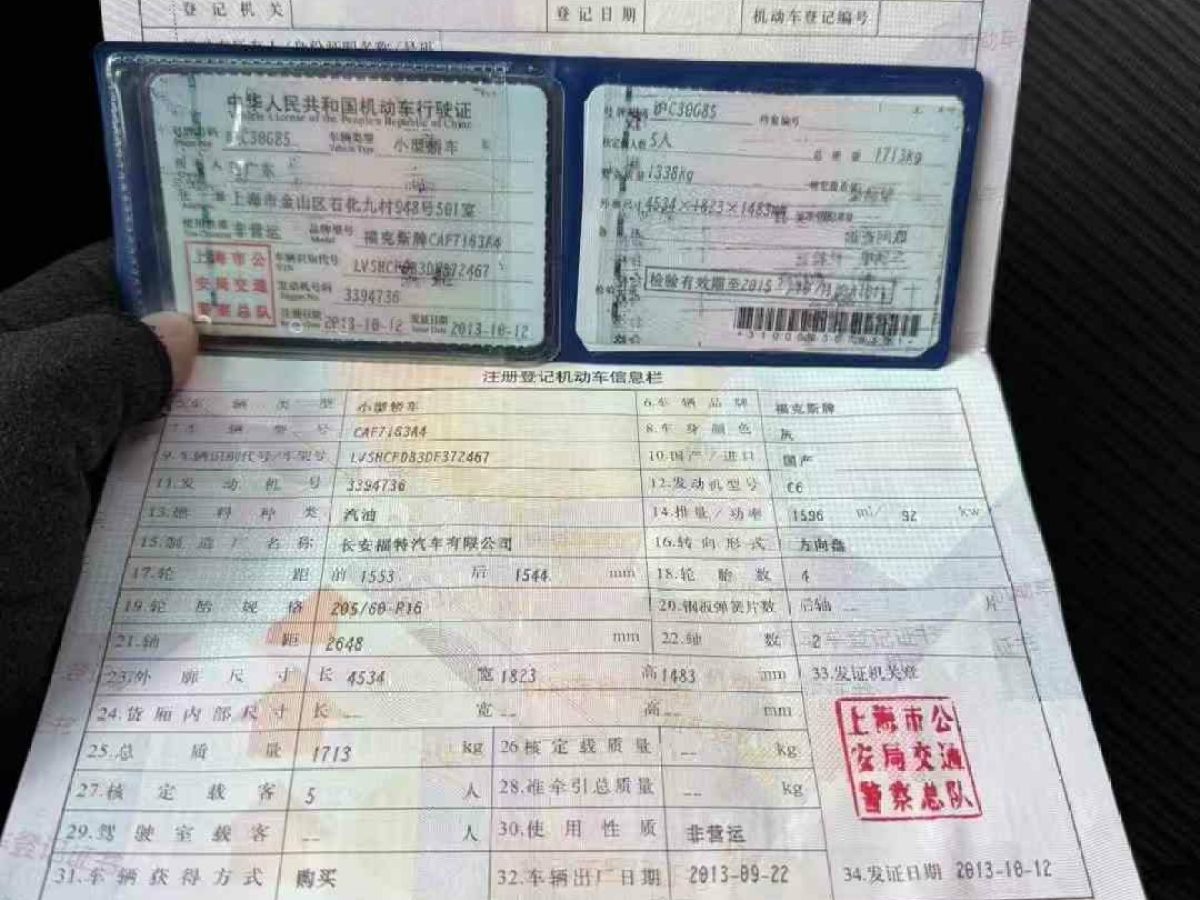 登记机关 登记日期 机动车登记编号
中华人民共和国机动车行驶证
Vehicle License of the People's Republic of China
号牌号码 沪C30G85 车辆类型 小型轿车
广东
上海市金山区石化九村948号501室
使用性质 非营运 品牌型号 福克斯牌CAF7163A4
Model
车辆识别代号 LVSHCFDB3DF372467
VIN
发动机号码 3394736
Engine No.
注册日期 2013-10-12 发证日期 2013-10-12
Issue Date
上海市公
安局交通
警察总队
沪C30G85 档案编号
核定载人数 5人 总质量 1713kg
1338kg
外廓尺寸 4534×1823×1483
检验有效期至2015
注册登记机动车信息栏
5.车辆类型 小型轿车 6.车辆品牌 福克斯牌
7.车辆型号 CAF7163A4 8.车身颜色 灰
9.车辆识别代号/车架号 LVSHCFDB3DF372467 10.国产/进口 国产
11.发动机号 3394736 12.发动机型号 C6
13.燃料种类 汽油 14.排量/功率 1596 ml/ 92 kw
15.制造厂名称 长安福特汽车有限公司 16.转向形式 方向盘
17.轮距 前 1553 后 1544 mm 18.轮胎数 4
19.轮胎规格 205/60-R16 20.钢板弹簧片数 后轴 -- 片
21.轴距 2648 mm 22.轴数 2
23.外廓尺寸 长 4534 宽 1823 高 1483 mm 33.发证机关章
24.货厢内部尺寸 长 -- 宽 -- 高 -- mm
25.总质量 1713 kg 26.核定载质量 -- kg
27.核定载客 5 人 28.准牵引总质量 -- kg
29.驾驶室载客 -- 人 30.使用性质 非营运
上海市公
安局交通
警察总队
31.车辆获得方式 购买 32.车辆出厂日期 2013-09-22 34.发证日期 2013-10-12